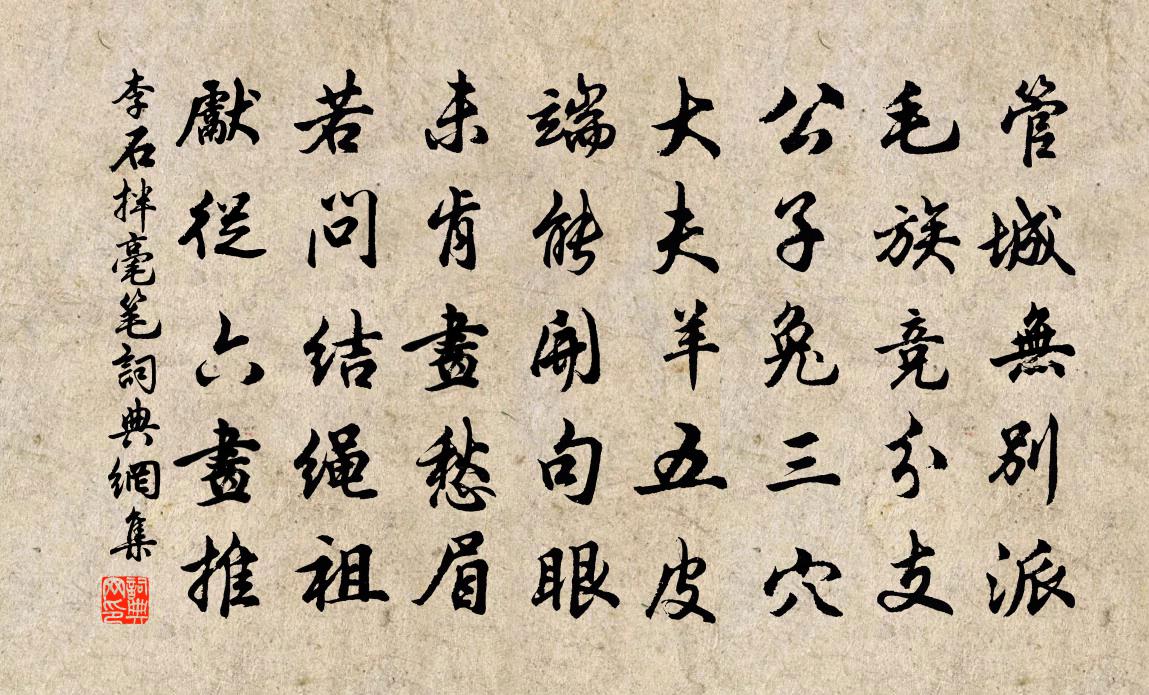 管城無別派
毛族竞分支
公子兔三穴
大夫羊五皮
端能開句眼
未肯畫愁眉
若問结绳祖
獻從六畫推
李石拌毫笔詞典網集
詞典網印